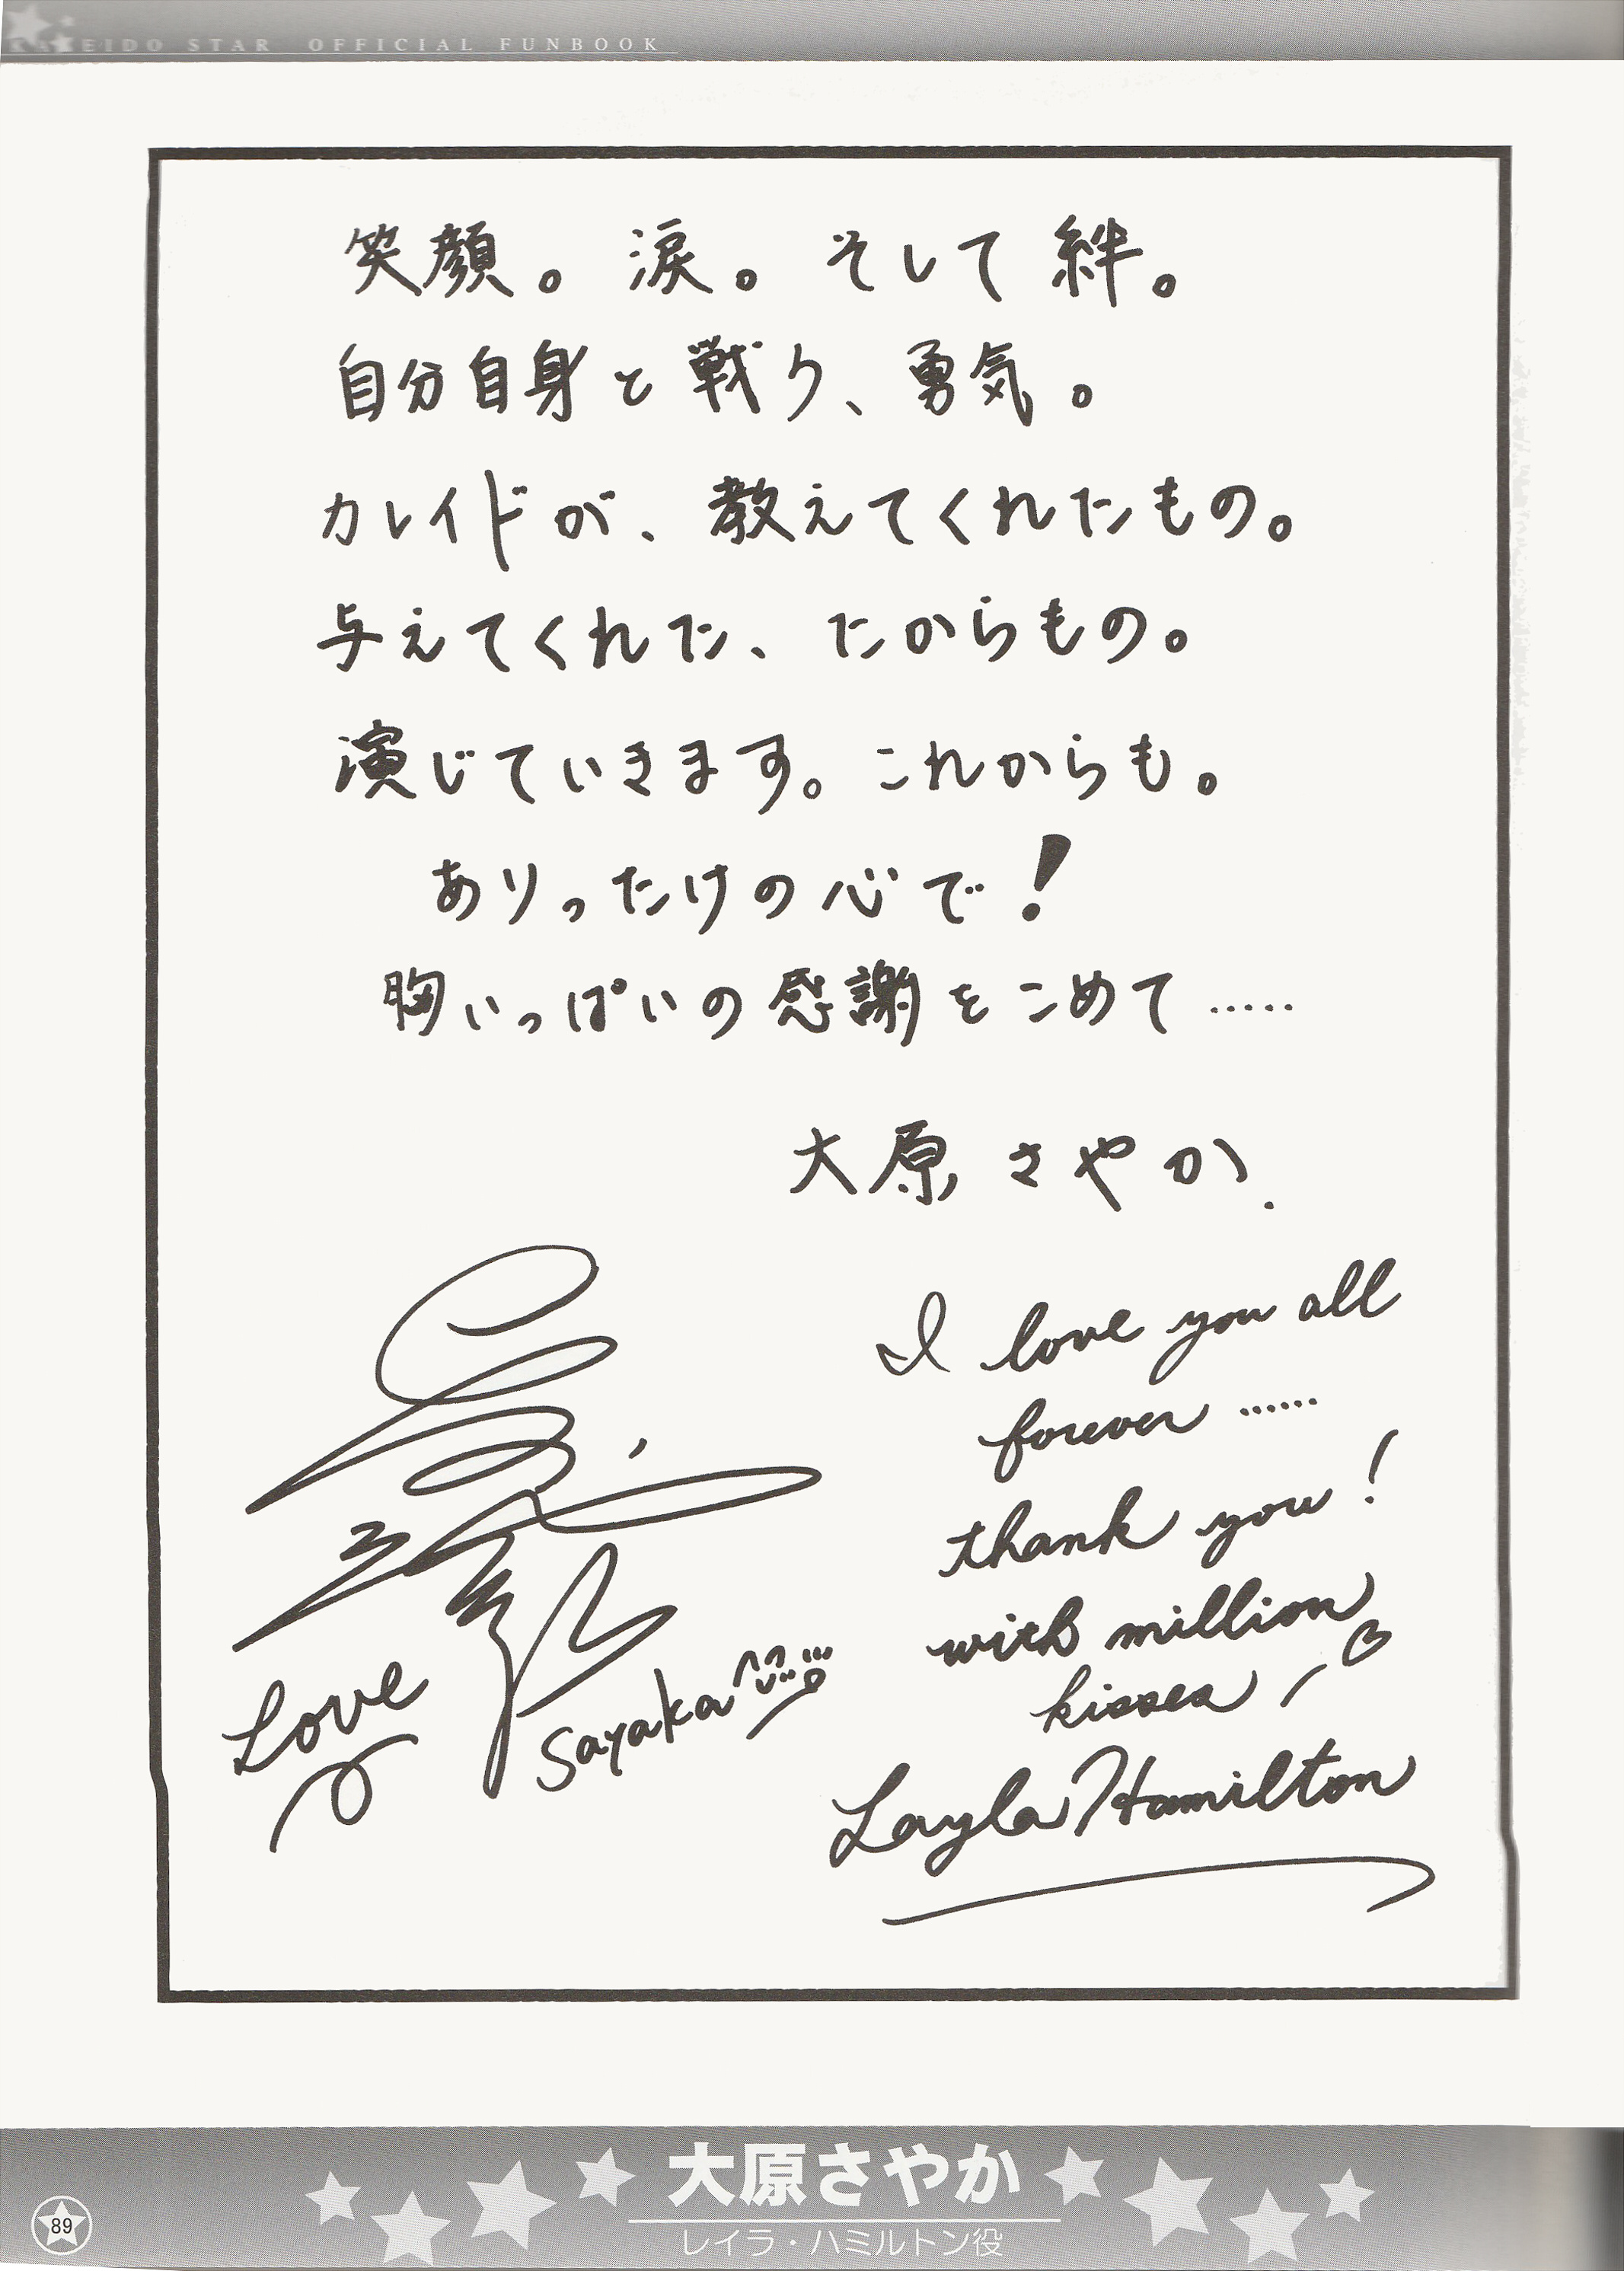 KALEIDO STAR OFFICIAL FUNBOOK
笑顔。涙。そして絆。
自分自身と戦う、勇気。
カレイドが、教えてくれたもの。
与えてくれた、たからもの。
演じていきます。これからも。
ありったけの心で!
胸いっぱいの感謝をこめて……
大原さやか.
I love you all
forever ……
thank you!
with million
kisses
Layla Hamilton
Love
Sayaka
大原さやか
レイラ・ハミルトン役
89